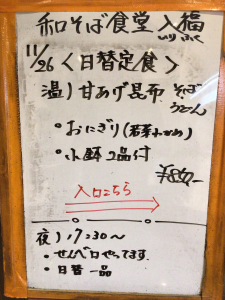 和そば食堂 入福
いりふく
11/26 〈日替定食〉
温) 甘あげ昆布 そば
うどん
・おにぎり(若菜わかめ)
・小鉢2品付
¥850-
入口こちら
夜) 17:30〜
・せんべロやってます。
・日替一品